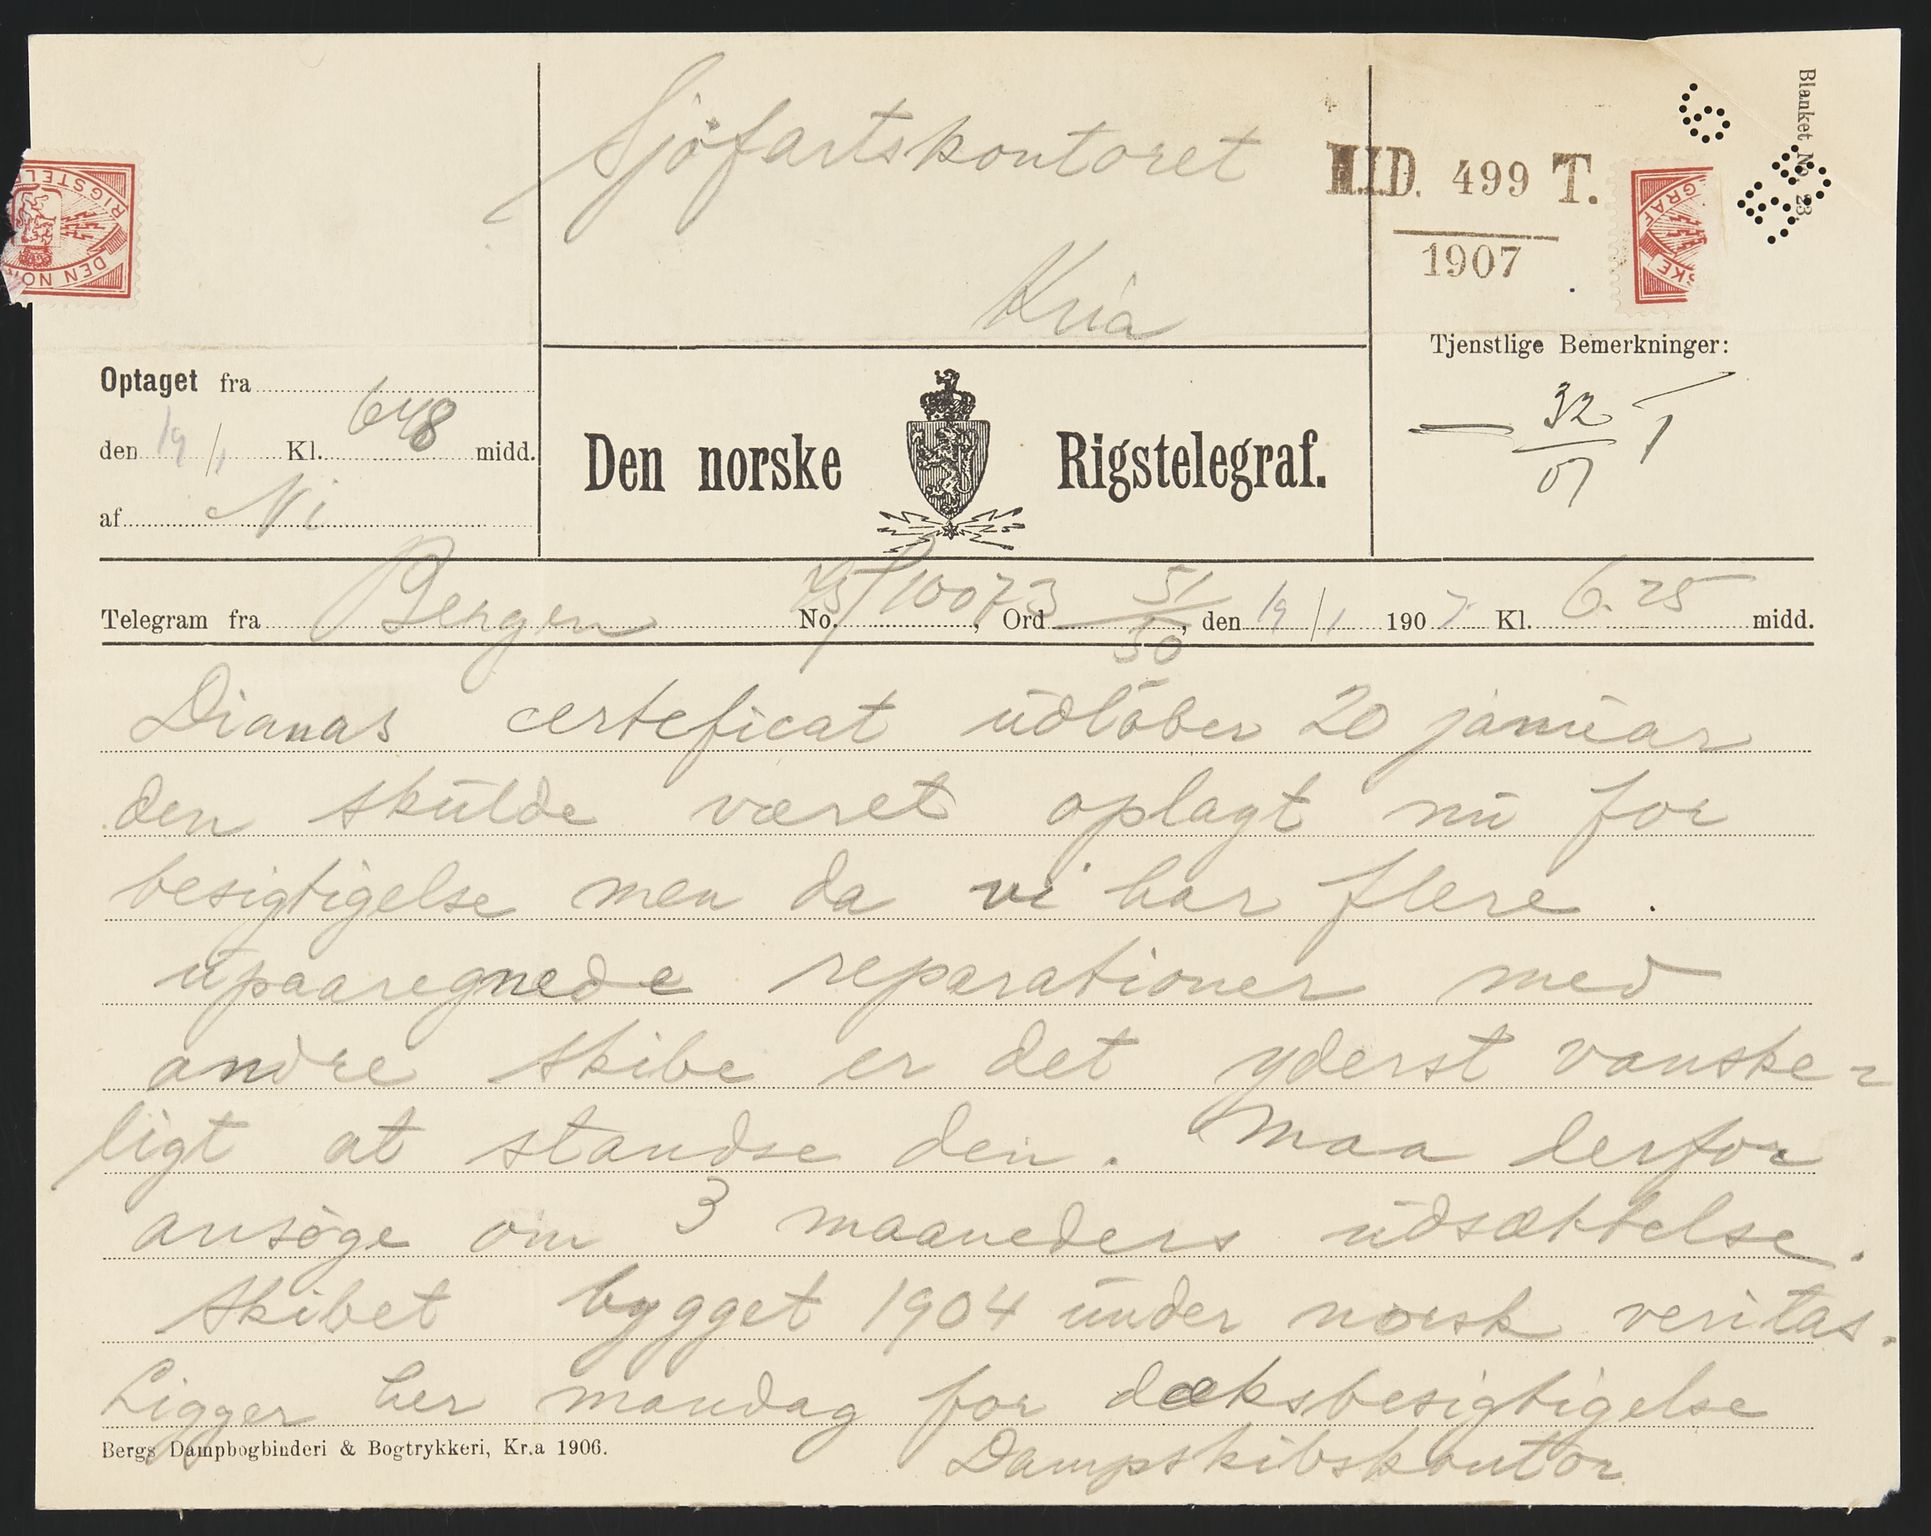 Sjöfartskontoret
Kria
H.I.D. 499 T.
1907
Blanket No. 23.
Tjenstlige Bemerkninger:
32
07
Optaget fra
den 19/1 Kl. 648 midd.
af Ni
Den norske Rigstelegraf.
Telegram fra Bergen No. 10073, Ord 51/50, den 19/1 1907 Kl. 6.25 midd.
Dianas certeficat udlöber 20 januar
den skulde været oplagt nu for
besigtigelse men da vi har flere .
upaaregnede reparationer med
andre skibe er det yderst vanske-
ligt at standse den. Maa derfor
ansöge om 3 maaneders udsættelse.
Skibet bygget 1904 under norsk veritas.
Ligger her mandag for dæksbesigtigelse
Dampskibskontor
Bergs Dampbogbinderi & Bogtrykkeri, Kr.a 1906.